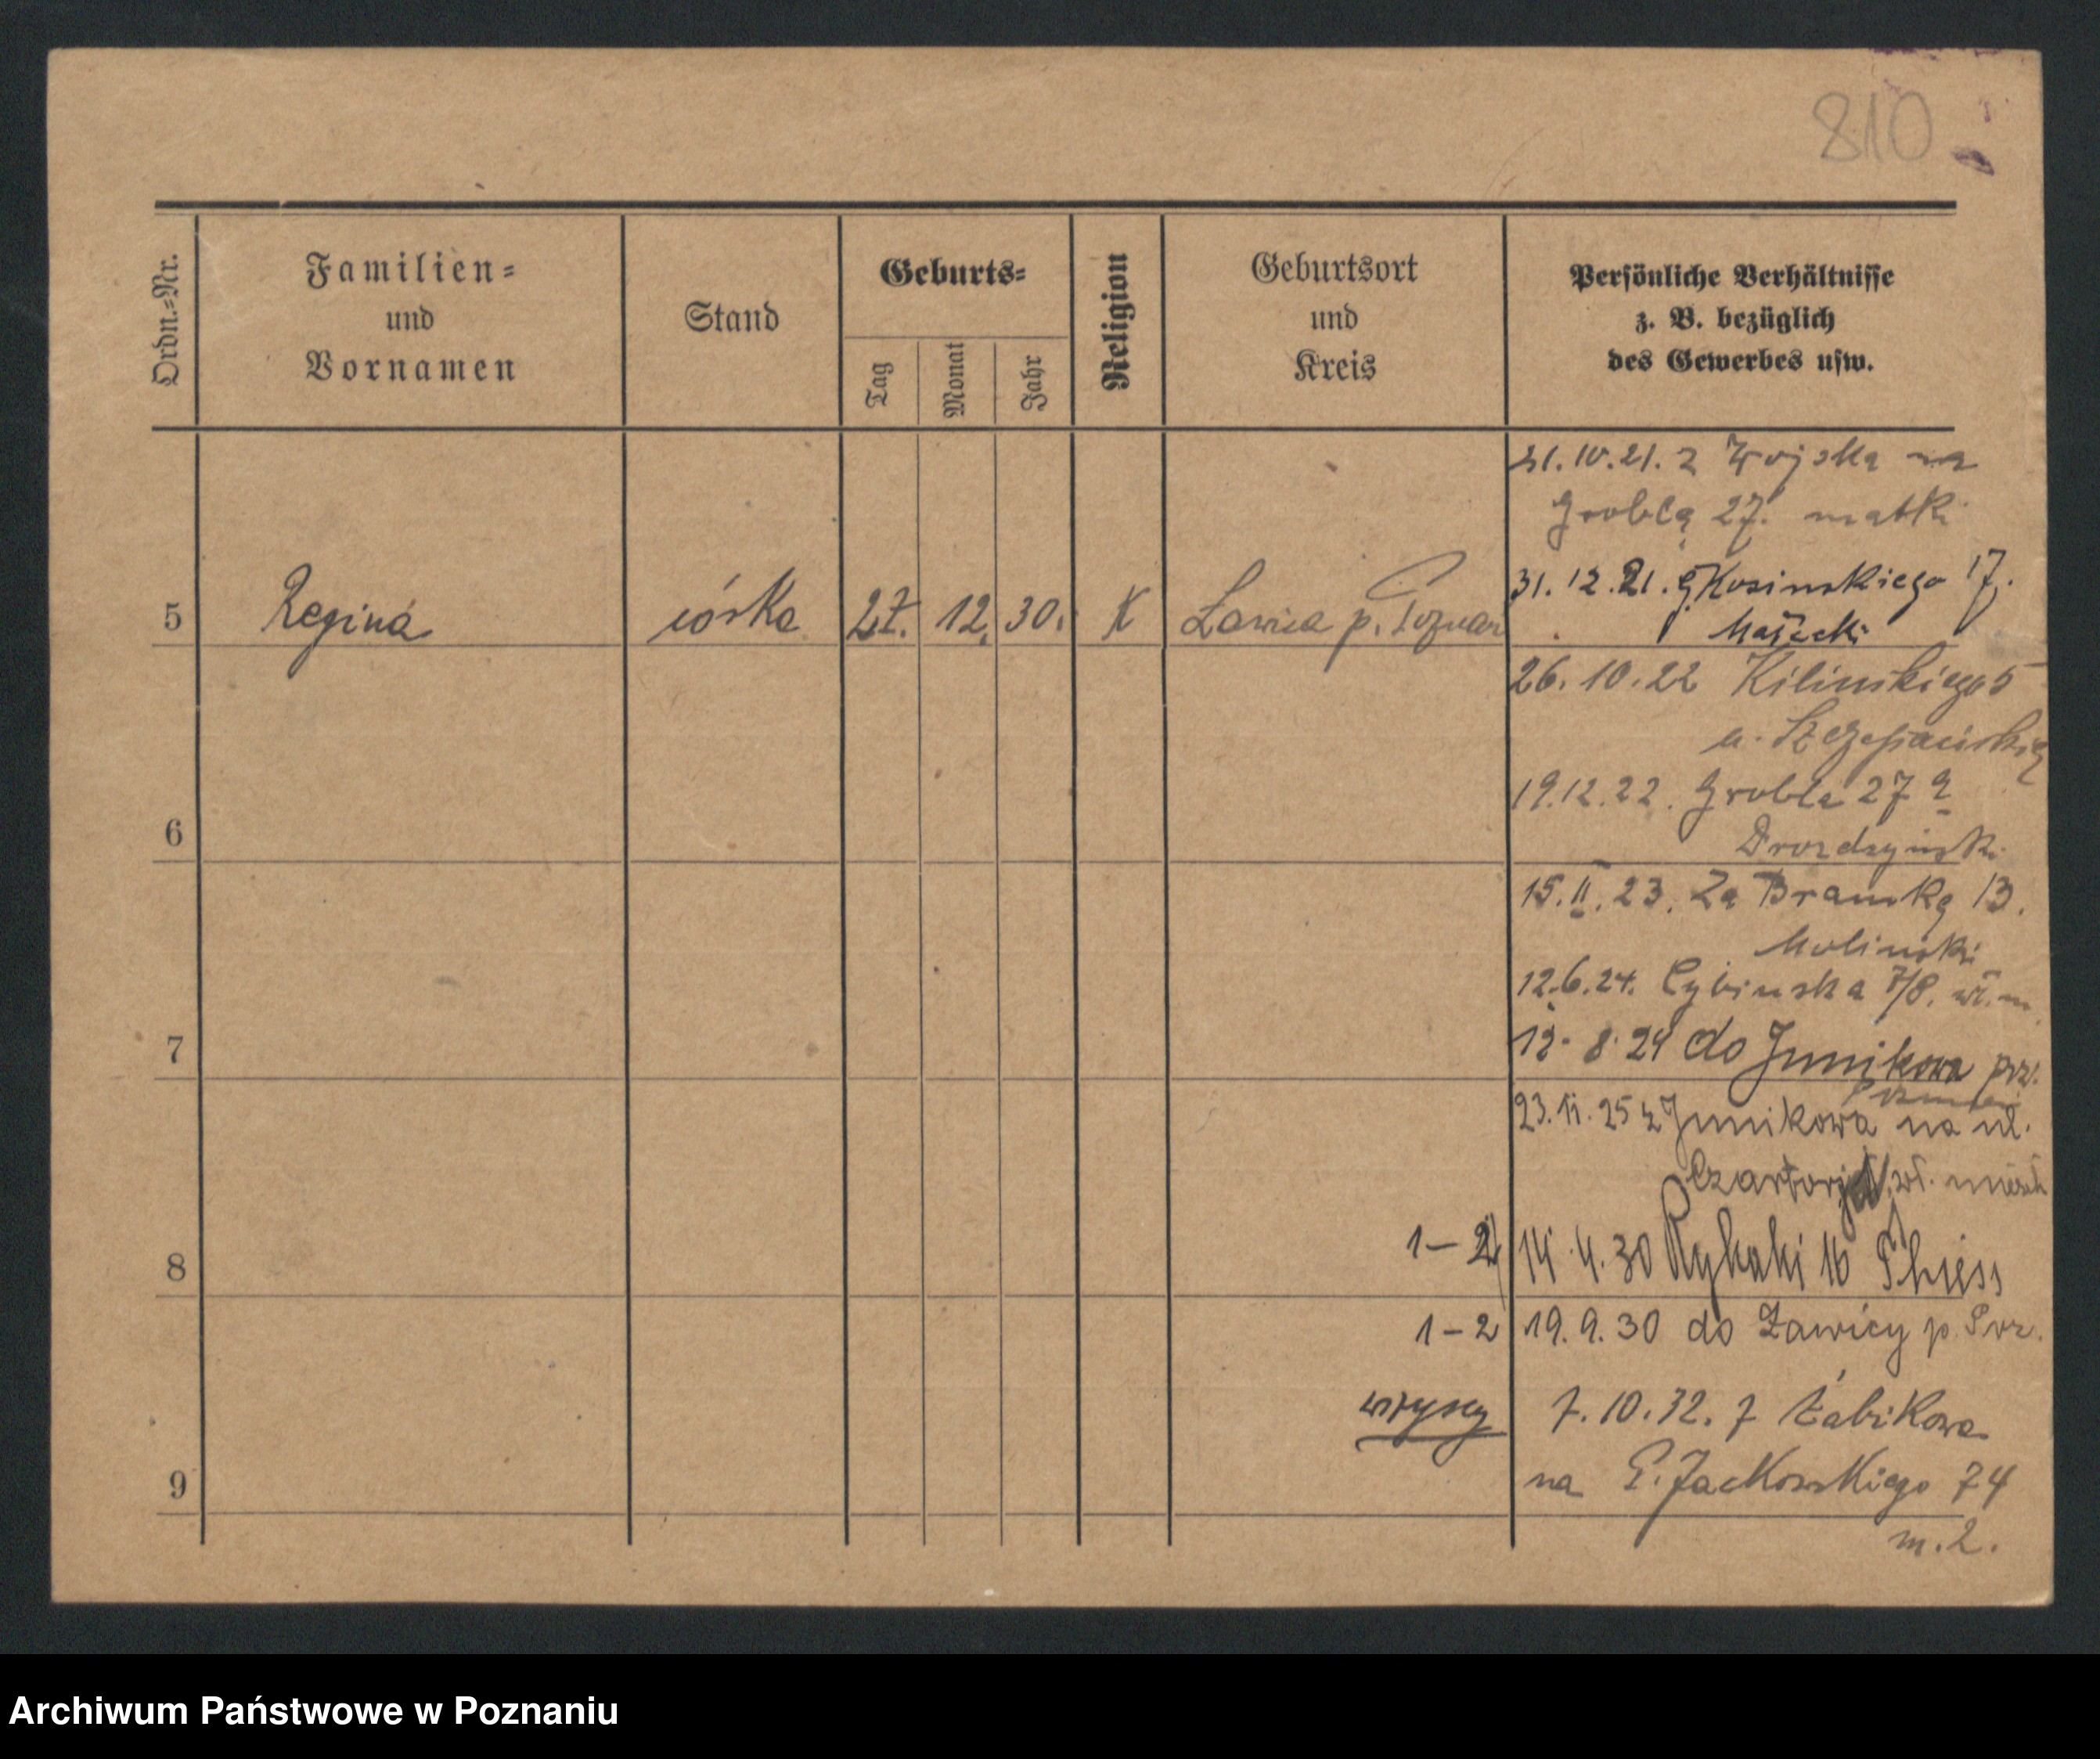 810
Ordn.-Nr.
Familien-
und
Vornamen
Stand
Geburts-
Tag
Monat
Jahr
Religion
Geburtsort
und
Kreis
Persönliche Verhältnisse
z. B. bezüglich
des Gewerbes usw.
21.10.21. z Wojska na
Groblą 27. matki
31.12.21. G. Kosinskiego 17.
Małecki
5 Regina córka 27. 12. 30. K Ławica p. Poznań
26.10.22 Kilinskiego 5
u. Szczepańskiej
19.12.22. Grobla 27
Drozdzyński
6
15.II.23. Za Bramką 13.
Molinski
12.6.24. Cybinska 7/8. wł. m
7
12. 8. 24 do Junikowa poz.
23.11.25 z Junikowa na ul.
wł. mieszk
8
1-2 14.4.30 16 Thiess
1-2 19.9.30 do Ławicy p. Poz.
wszyscy 7.10.32. z Żabikowa
9
na G. Jackowskiego 74
m.2.
Archiwum Państwowe w Poznaniu